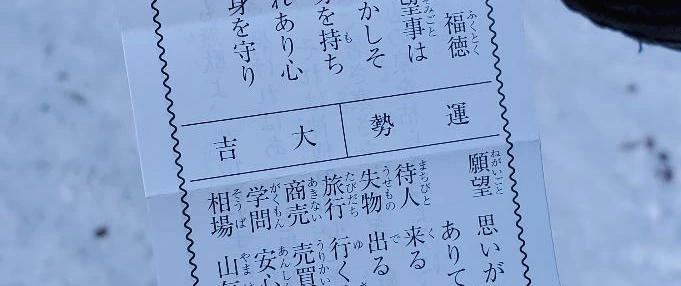 福徳
望事は
かしそ
を持ち
れあり心
身を守り
運勢
大吉
願望 思いが
ありて
待人 来る
失物 出る
旅行 行く
商売 売買
学問 安心
相場 山気